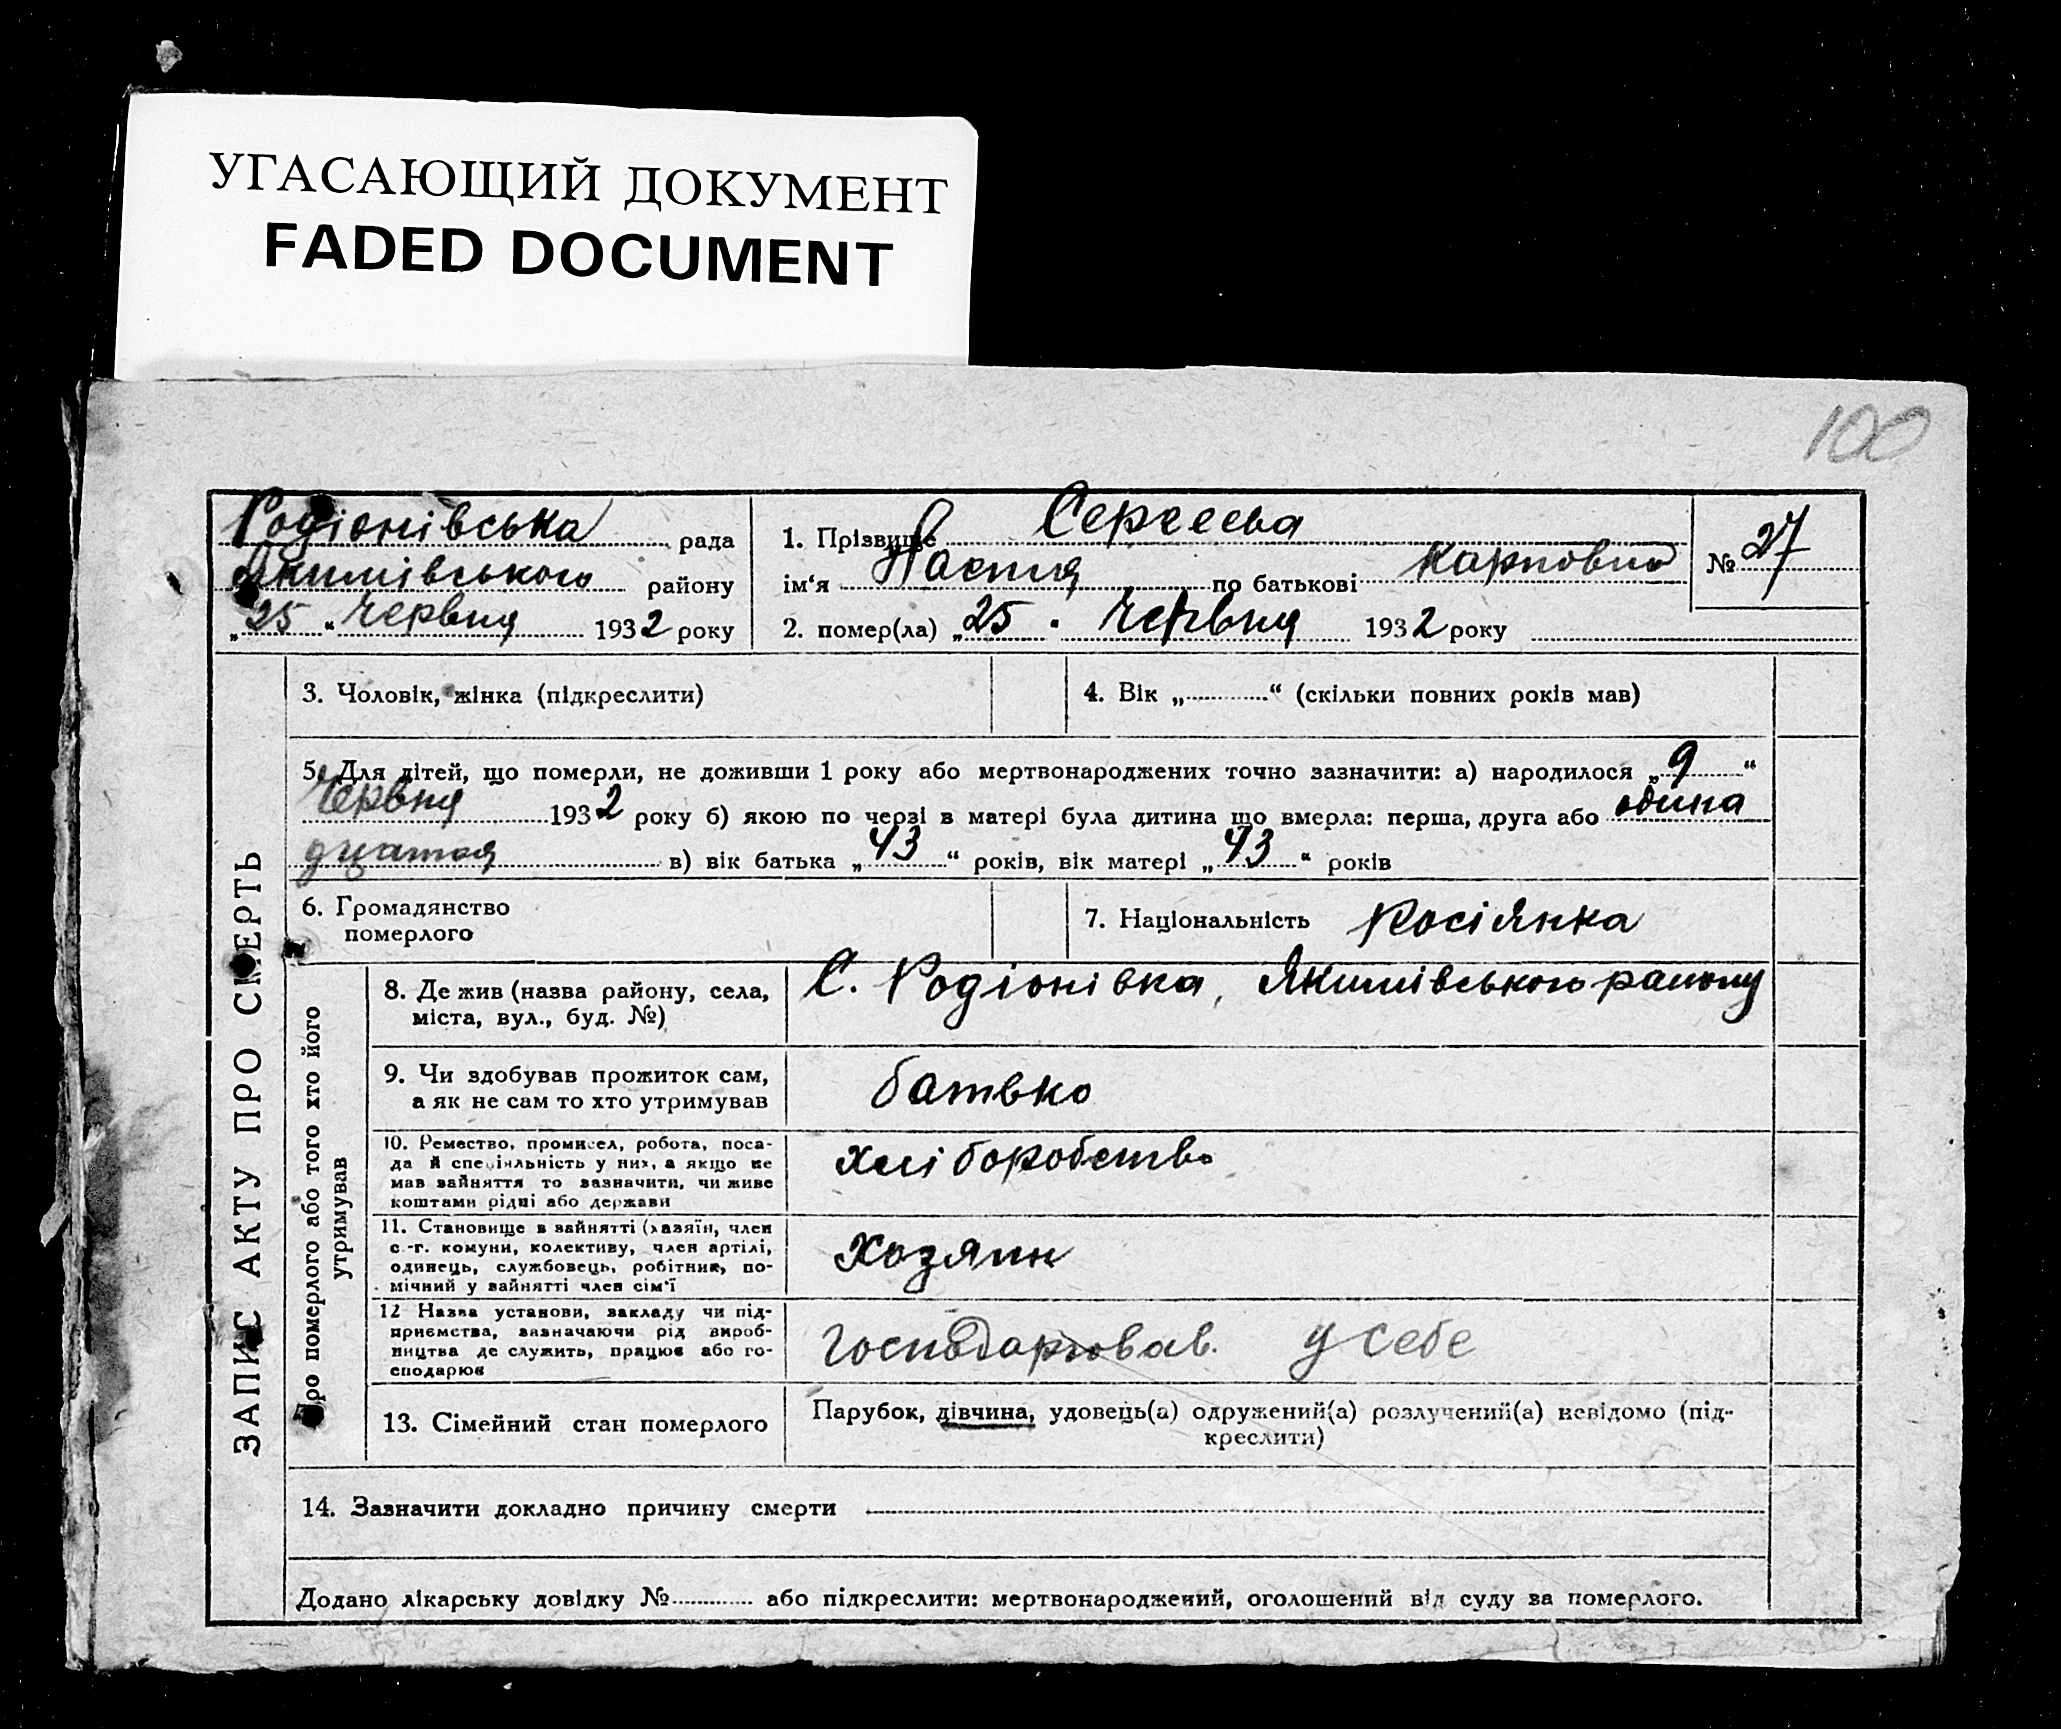 УГАСАЮЩИЙ ДОКУМЕНТ
FADED DOCUMENT
100
Родіонівська рада
Якимівського району
„25“ Червня 1932 року
1. Прізвище Сергеева
ім‘я Настя по батькові Карповна
2. помер(ла) „25 . Червня 1932 року
№ 27
ЗАПИС АКТУ ПРО СМЕРТЬ
3. Чоловік, жінка (підкреслити)
4. Вік „............“ (скільки повних років мав)
5. Для дітей, що померли, не доживши 1 року або мертвонароджених точно зазначити: а) народилося „9“
Червня 1932 року б) якою по черзі в матері була дитина що вмерла: перша, друга або одина
дцатая в) вік батька „43“ років, вік матері „43“ років
6. Громадянство
померлого
7. Національність Росіянка
Про померлого або того хто його
утримував
8. Де жив (назва району, села,
міста, вул., буд. №)
С. Родіонівка, Якимівського району
9. Чи здобував прожиток сам,
а як не сам то хто утримував
батько
10. Ремество, промисел, робота, поса-
да й спеціяльність у них, а якщо не
мав зайняття то зазначити, чи живе
коштами рідні або держави
хліборобство
11. Становище в зайнятті (хазяїн, член
с.-г. комуни, колективу, член артілі,
одинець, службовець, робітник, по-
мічний у зайнятті член сім‘ї
Хозяин
12 Назва установи, закладу чи під-
приємства, зазначаючи рід вироб-
ництва де служить, працює або го-
сподарює
господарював. у себе
13. Сімейний стан померлого
Парубок, дівчина, удовець(а) одружений(а) розлучений(а) невідомо (під-
креслити)
14. Зазначити докладно причину смерти
Додано лікарську довідку №............ або підкреслити: мертвонароджений, оголошений від суду за померлого.